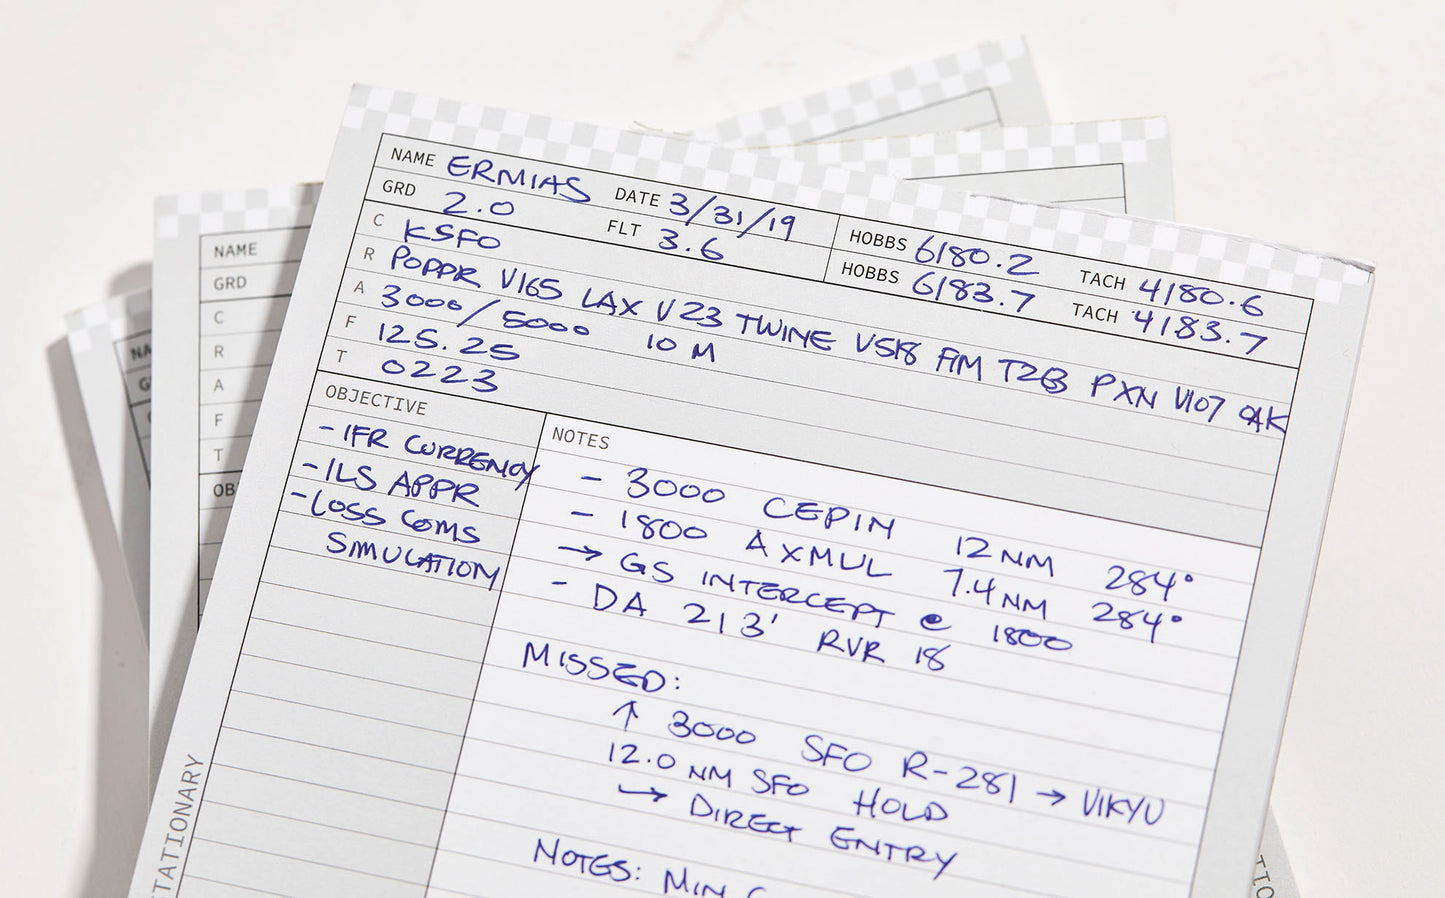 NAME ERMIAS DATE 3/31/19 HOBBS 6180.2 TACH 4180.6
GRD 2.0 FLT 3.6 HOBBS 6183.7 TACH 4183.7
C KSFO
R POPPR V165 LAX V23 TWINE V518 FIM T263 PXN V107 OAK
A 3000/5000 10 M
F 125.25
T 0223
OBJECTIVE
- IFR CURRENCY
- ILS APPR
- LOSS COMS
SIMULATION
NOTES
- 3000 CEPIN 12 NM 284°
- 1800 AXMUL 7.4 NM 284°
→ GS INTERCEPT @ 1800
- DA 213' RVR 18
MISSED:
↑ 3000 SFO R-281 → VIKYU
12.0 NM SFO HOLD
→ DIRECT ENTRY
NOTES: MIN
NAME
GRD
C
R
A
F
T
OB
NA
G
TATIONARY